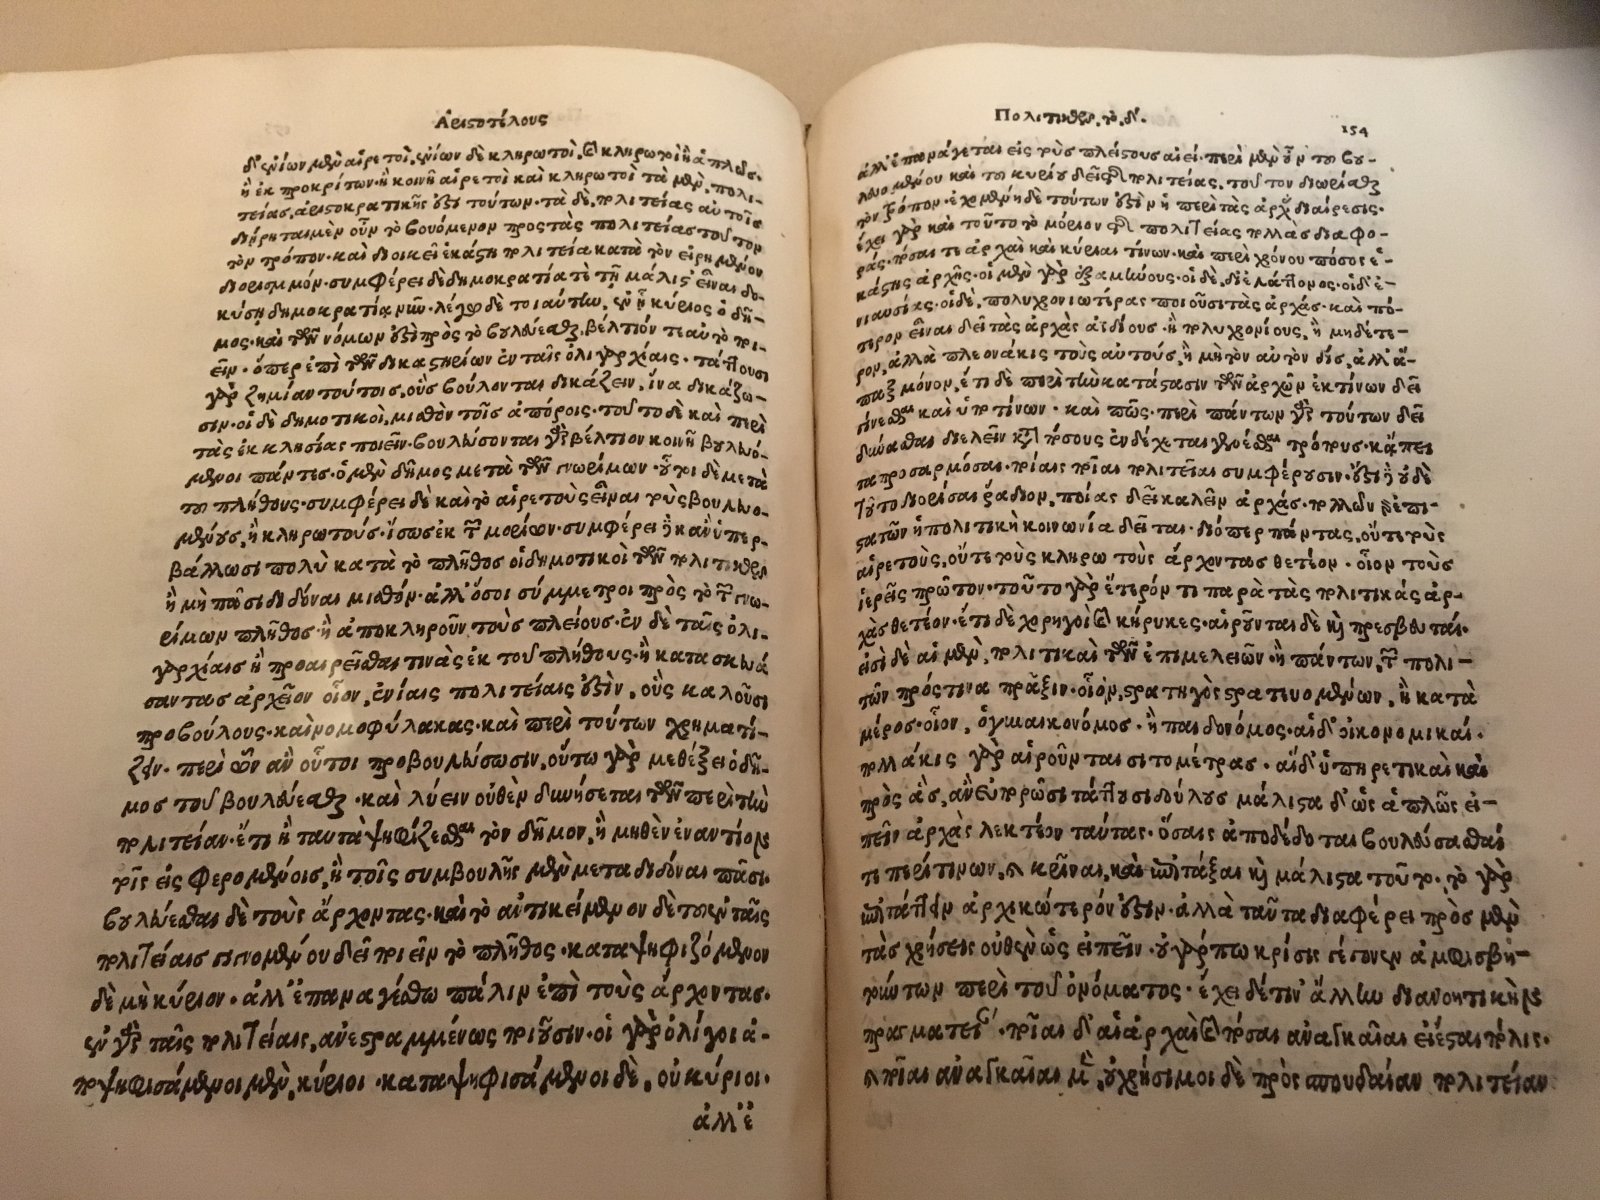 Ἀριστοτέλους
δ' ἐνίων μὲν αἱρετοὶ, ἐνίων δὲ κληρωτοὶ, καὶ κληρωτοὶ ἢ ἁπλῶς.
ἢ ἐκ προκρίτων· ἢ κοινῇ αἱρετοὶ καὶ κληρωτοὶ τὰ μὲν, πολι-
τείας, ἀριστοκρατικῆς ἐστι τούτων· τὰ δὲ, πολιτείας αὐτοῖς
διῄρηται μὲν οὖν τὸ βουόμενον πρὸς τὰς πολιτείας τοῦτον
τὸν τρόπον· καὶ διοικεῖ ἑκάστη πολιτεία κατὰ τὸν εἰρημένον
διορισμόν· συμφέρει δὲ δημοκρατίᾳ τε τῇ μάλιστ' εἶναι δο-
κούσῃ δημοκρατίᾳ νῦν· λέγω δὲ τοιαύτην, ἐν ᾗ κύριος ὁ δῆ-
μος· καὶ τῶν νόμων ἐστὶ πρὸς τὸ βουλεύεσθαι, βέλτιόν τε αὐτὸ ποι-
εῖν· ὅπερ ἐπὶ τῶν δικαστηρίων ἐν ταῖς ὀλιγαρχίαις· τάττουσι
γὰρ ζημίαν τούτοις, οὓς βούλονται δικάζειν, ἵνα δικάζω-
σιν· οἱ δὲ δημοτικοὶ, μισθὸν τοῖς ἀπόροις· τοῦτο δὲ καὶ περὶ
τὰς ἐκκλησίας ποιεῖν· βουλεύσονται γὰρ βέλτιον κοινῇ βουλευό-
μενοι πάντες· ὁ μὲν δῆμος μετὰ τῶν γνωρίμων· οὗτοι δὲ μετὰ
τοῦ πλήθους· συμφέρει δὲ καὶ τὸ αἱρετοὺς εἶναι τοὺς βουλευο-
μένους, ἢ κληρωτούς· ἴσως ἐκ τῶν μορίων· συμφέρει ἢ κἂν ὑπερ-
βάλλωσι πολὺ κατὰ τὸ πλῆθος οἱ δημοτικοὶ τῶν πολιτικῶν
ἢ μὴ πᾶσι διδόναι μισθόν· ἀλλ' ὅσοι σύμμετροι πρὸς τὸ τῶν γνω-
ρίμων πλῆθος· ἢ ἀποκληροῦν τοὺς πλείους· ἐν δὲ ταῖς ὀλι-
γαρχίαις ἢ προαιρεῖσθαι τινὰς ἐκ τοῦ πλήθους· ἢ κατασκευά
σαντας ἀρχεῖον οἷον, ἐνίαις πολιτείαις ἐστὶν, οὓς καλοῦσι
προβούλους· καὶ νομοφύλακας· καὶ περὶ τούτων χρηματί-
ζειν· περὶ ὧν ἂν οὗτοι προβουλεύσωσιν, οὕτω γὰρ μεθέξει ὁ δῆ-
μος τοῦ βουλεύεσθαι· καὶ λύειν οὐθὲν δυνήσεται τῶν περὶ τὴν
πολιτείαν· ἔτι ἢ ταυτὰ ψηφίζεσθαι τὸν δῆμον, ἢ μηθὲν ἐναντίον
τοῖς εἰσφερομένοις, ἢ τοῖς συμβουλῆς μὲν μεταδιδόναι πᾶσι·
βουλεύεσθαι δὲ τοὺς ἄρχοντας· καὶ τὸ ἀντικείμενον δὲ τοῦ ἐν ταῖς
πολιτείαις γινομένου δεῖ ποιεῖν τὸ πλῆθος· καταψηφιζόμενον
δὲ μὴ κύριον· ἀλλ' ἐπαναγέσθω πάλιν ἐπὶ τοὺς ἄρχοντας·
ἐν γὰρ ταῖς πολιτείαις, ἀνεστραμμένως ποιοῦσιν· οἱ γὰρ ὀλίγοι ἀ-
ποψηφισάμενοι μὲν, κύριοι· καταψηφισάμενοι δὲ, οὐ κύριοι·
ἀλλ' ἐ
Πολιτικῶν, τὸ, δ'.
154
ἀλλ' ἐπανάγεται εἰς τοὺς πλείστους αἰεί· περὶ μὲν οὖν τοῦ βου-
λευομένου καὶ τοῦ κυρίου δεῖ τῆς πολιτείας, τοῦτον διωρίσθαι
τὸν τρόπον· ἐχομένη δὲ τούτων ἐστὶν ἡ περὶ τὰς ἀρχὰς διαίρεσις·
ἔχει γὰρ καὶ τοῦτο τὸ μόριον τῆς πολιτείας πολλὰς διαφο-
ράς· πόσαι τε ἀρχαὶ καὶ κύριαι τίνων· καὶ περὶ χρόνου πόσος ἑ-
κάστης ἀρχῆς· οἱ μὲν γὰρ ἑξαμήνους· οἱ δὲ, δι' ἐλάττονος· οἱ δ' ἐ-
νιαυσίας· οἱ δὲ, πολυχρονιωτέρας ποιοῦσι τὰς ἀρχάς· καὶ πό-
τερον εἶναι δεῖ τὰς ἀρχὰς ἀϊδίους· ἢ πολυχρονίους, ἢ μηδέτε-
ρον, ἀλλὰ πλεονάκις τοὺς αὐτούς, ἢ μὴ τὸν αὐτὸν δίς, ἀλλ' ἅ-
παξ μόνον, ἔτι δὲ περὶ τὴν κατάστασιν τῶν ἀρχῶν ἐκ τίνων δεῖ
γίνεσθαι καὶ ὑπὸ τίνων· καὶ πῶς· περὶ πάντων γὰρ τούτων δεῖ
δύνασθαι διελεῖν κατὰ πόσους ἐνδέχεται γενέσθαι τρόπους· κἄπει
τα προσαρμόσαι· ποίαις ποῖαι πολιτεῖαι συμφέρουσιν· ἔστι ἢ οὐδὲ
τοῦτο διορίσαι ῥᾴδιον, ποίας δεῖ καλεῖν ἀρχάς· πολλῶν γὰρ ἐπι-
στατῶν ἡ πολιτικὴ κοινωνία δεῖται· διόπερ πάντας, οὔτε τοὺς
αἱρετοὺς, οὔτε τοὺς κληρωτοὺς ἄρχοντας θετέον· οἷον τοὺς
ἱερεῖς πρῶτον· τοῦτο γὰρ ἕτερόν τι παρὰ τὰς πολιτικάς ἀρ-
χὰς θετέον· ἔτι δὲ χορηγοὶ καὶ κήρυκες· αἱροῦνται δὲ καὶ πρεσβευταί·
εἰσὶ δὲ αἱ μὲν, πολιτικαὶ τῶν ἐπιμελειῶν· ἢ πάντων, τῶν πολι-
τῶν πρός τινα πρᾶξιν· οἷον, στρατηγὸς στρατευομένων, ἢ κατὰ
μέρος· οἷον, ὁ γυναικονόμος· ἢ παιδονόμος· αἱ δ' οἰκονομικαί·
πολλάκις γὰρ αἱροῦνται σιτομέτρας· αἱ δ' ὑπηρετικαὶ καὶ
πρὸς ἃς, ἂν εὐπορῶσι τάττουσι δούλους μάλιστα δ' ὡς ἁπλῶς εἰ-
πεῖν ἀρχὰς λεκτέον ταύτας· ὅσαις ἀποδέδοται βουλεύσασθαί
τι περὶ τινων, καὶ κρῖναι, καὶ ἐπιτάξαι καὶ μάλιστα τοῦτο· τὸ γὰρ
ἐπιτάττειν ἀρχικώτερόν ἐστιν· ἀλλὰ ταῦτα διαφέρει πρὸς μὲν
τὰς χρήσεις οὐθὲν ὡς εἰπεῖν· οὐ γάρ πω κρίσις γέγονεν ἀμφισβη-
τούντων περὶ τοῦ ὀνόματος· ἔχει δέ τιν' ἄλλην διανοητικὴν
πραγματείαν· ποῖαι δ' αἱ ἀρχαὶ καὶ πόσαι ἀναγκαῖαι εἰ ἔσται πόλις·
καὶ ποῖαι ἀναγκαῖαι μὲν, οὐ χρήσιμοι δὲ πρὸς σπουδαίαν πολιτείαν